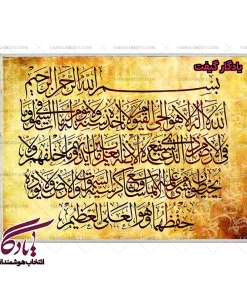 یادگار گیفت
بسم الله الرحمن الرحيم
الله لا إله إلا هو الحي القيوم لا تأخذه سنة ولا نوم له ما في السموات وما
في الأرض من ذا الذي يشفع عنده إلا بإذنه يعلم ما بين أيديهم وما خلفهم ولا
يحيطون بشيء من علمه إلا بما شاء وسع كرسيه السموات والأرض ولا يؤوده
حفظهما وهو العلي العظيم
یادگار
انتخاب هوشمندانه